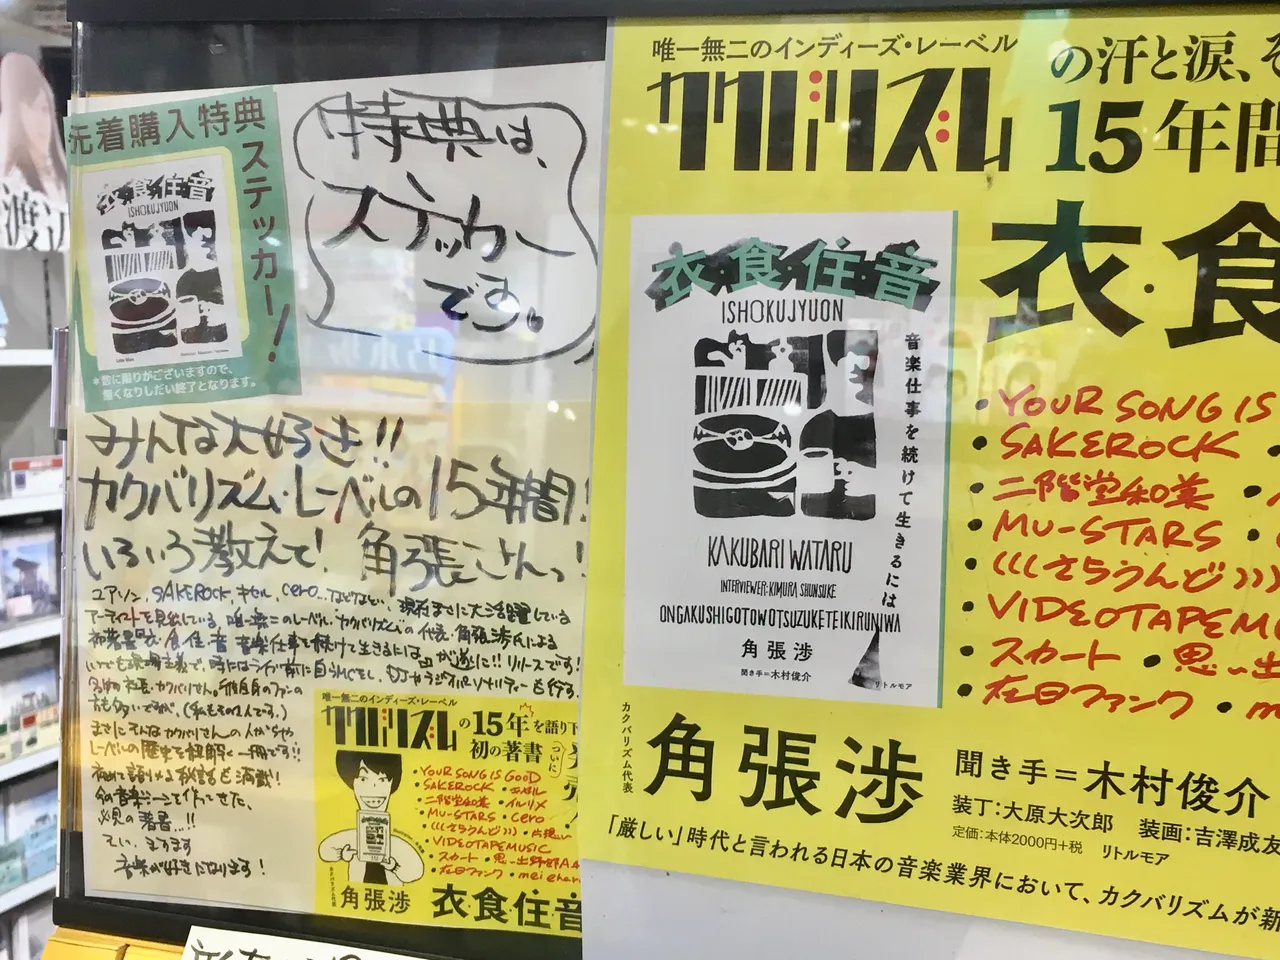 渡辺
先着購入特典
ステッカー!
衣食住音
ISHOKUJYUON
*数に限りがございますので、
無くなりしだい終了となります。
特典は、
ステッカー
です。
みんな大好き!!
カクバリズム・レーベルの15年間!
いろいろ教えて!角張さんっ!
ユアソン、SAKEROCK、キセル、cero...などなど、現在まさに大活躍している
アーティストを見出している、唯一無二のレーベル、カクバリズムの代表・角張渉氏による
初著書「衣・食・住・音 音楽仕事を続けて生きるには」が遂に!!リリースです!
方も多いですが、(私もその1人です。)
まさにそんなカクバリさんの人がらや
レーベルの歴史を紐解く一冊です!!
初めて語られる秘話も満載!
今の音楽シーンを作ってきた、
必見の著書...!!
てい、ますます
音楽が好きになります!
唯一無二のインディーズ・レーベル
カクバリズムの15年を語り下
初の著書
ついに
・YOUR SONG IS GOOD
・SAKEROCK ・キセル
・二階堂和美 ・イルリメ
・MU-STARS ・cero
・(((さらうんど))) ・片想い
・VIDEOTAPEMUSIC
・スカート ・思い出野郎A
・在日ファンク ・mei ehara
カクバリズム代表
角張渉
衣食住音
唯一無二のインディーズ・レーベル
カクバリズム
の汗と涙、そ
15年間
衣・食
衣・食・住・音
ISHOKUJYUON
音楽仕事を続けて生きるには
KAKUBARI WATARU
INTERVIEWER:KIMURA SHUNSUKE
ONGAKUSHIGOTOWOTSUZUKETEIKIRUNIWA
角張渉
聞き手=木村俊介
リトルモア
・YOUR SONG IS
・SAKEROCK ・
・二階堂和美 ・
・MU-STARS ・
・(((さらうんど)))
・VIDEOTAPEMU
・スカート ・思い出
・在日ファンク ・m
カクバリズム代表
角張渉
聞き手=木村俊介
装丁:大原大次郎 装画:吉澤成友
定価:本体2000円+税 リトルモア
「厳しい」時代と言われる日本の音楽業界において、カクバリズムが新